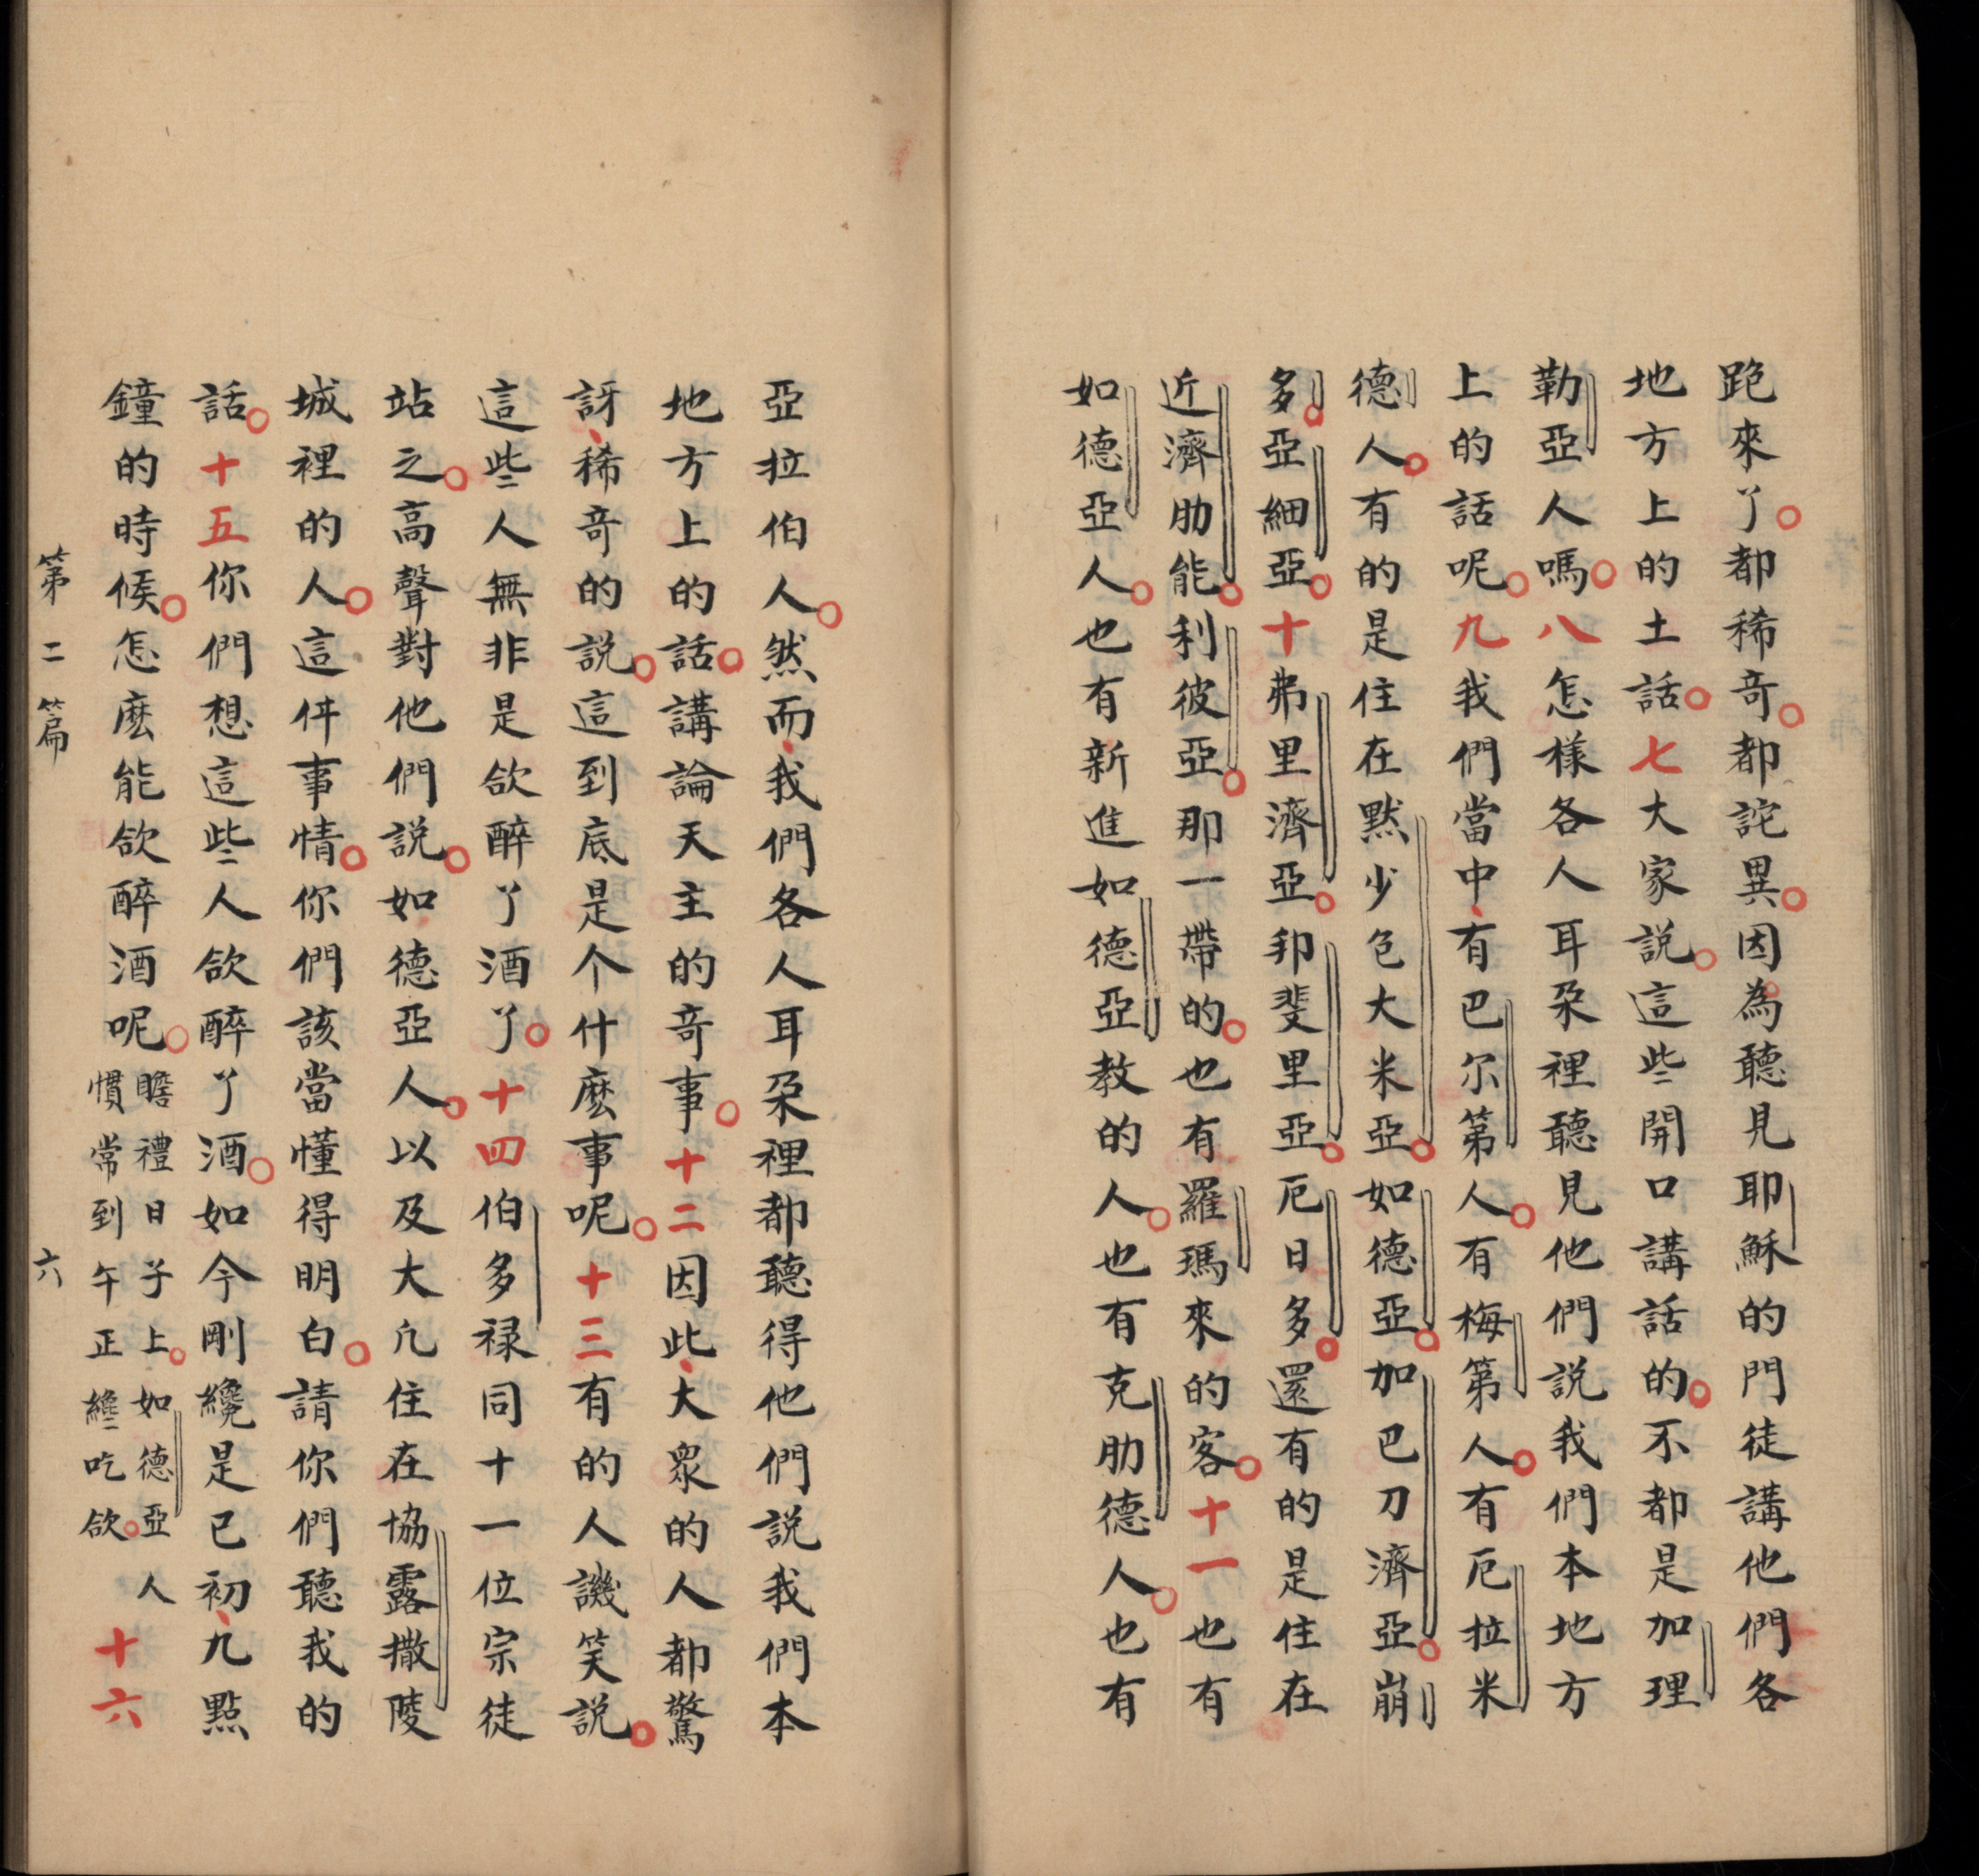 跑來了。都稀奇。都詫異。因為聽見耶穌的門徒講他們各
地方上的土話。七大家説。這些開口講話的。不都是加理
勒亞人嗎。八怎樣各人耳朶裡聽見他們說我們本地方
上的話呢。九我們當中、有巴尔第人。有梅第人。有厄拉米
德人。有的是住在默少包大米亞。如德亞。加巴刀濟亞。崩
多。亞細亞。十弗里濟亞。邦斐里亞。厄日多。還有的是住在
近濟肋能。利彼亞。那一帶的。也有羅瑪來的客。十一也有
如德亞人。也有新進如德亞教的人。也有克肋德人。也有
亞拉伯人。然而、我們各人耳朶裡都聽得他們說我們本
地方上的話。講論天主的奇事。十二因此、大眾的人都驚
訝、稀奇的說。這到底是个什麽事呢。十三有的人譏笑説。
這些人無非是飲醉了酒了。十四伯多禄同十一位宗徒
站之。高聲對他們説。如德亞人。以及大凢住在協露撒陵
城裡的人。這件事情。你們該當懂得明白。請你們聽我的
話。十五你們想這些人飲醉了酒。如今剛纔是巳初、九點
鐘的時候。怎麽能飲醉酒呢。瞻禮日子上。如德亞人
慣常到午正纔吃飲。十六
第二篇 六